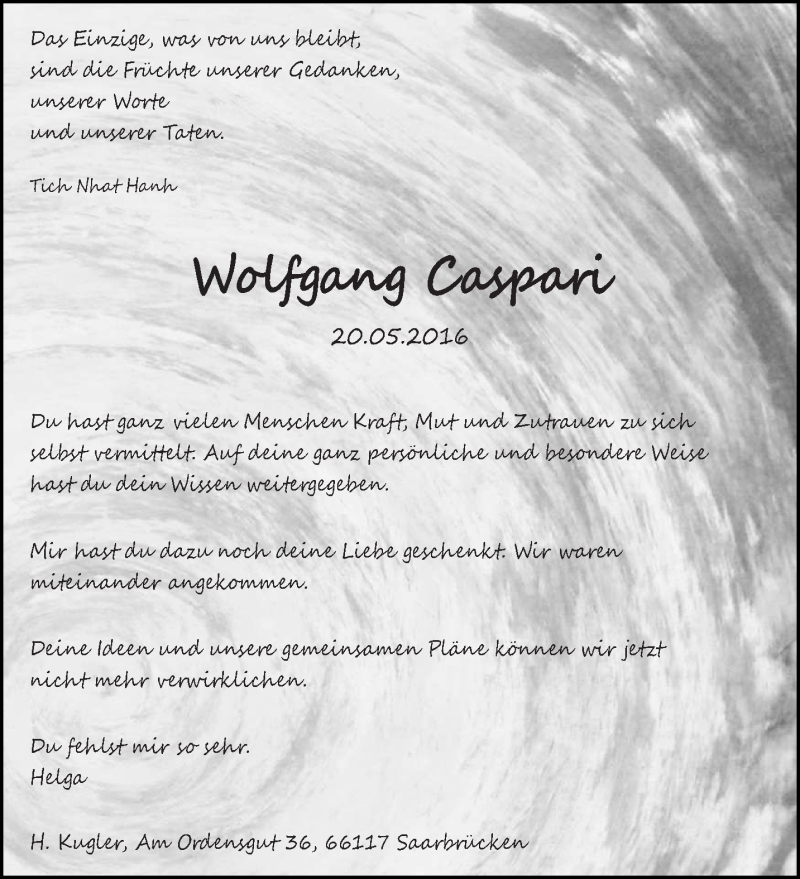 Das Einzige, was von uns bleibt,
sind die Früchte unserer Gedanken,
unserer Worte
und unserer Taten.
Tich Nhat Hanh
Wolfgang Caspari
20.05.2016
Du hast ganz vielen Menschen Kraft, Mut und Zutrauen zu sich
selbst vermittelt. Auf deine ganz persönliche und besondere Weise
hast du dein Wissen weitergegeben.
Mir hast du dazu noch deine Liebe geschenkt. Wir waren
miteinander angekommen.
Deine Ideen und unsere gemeinsamen Pläne können wir jetzt
nicht mehr verwirklichen.
Du fehlst mir so sehr.
Helga
H. Kugler, Am Ordensgut 36, 66117 Saarbrücken